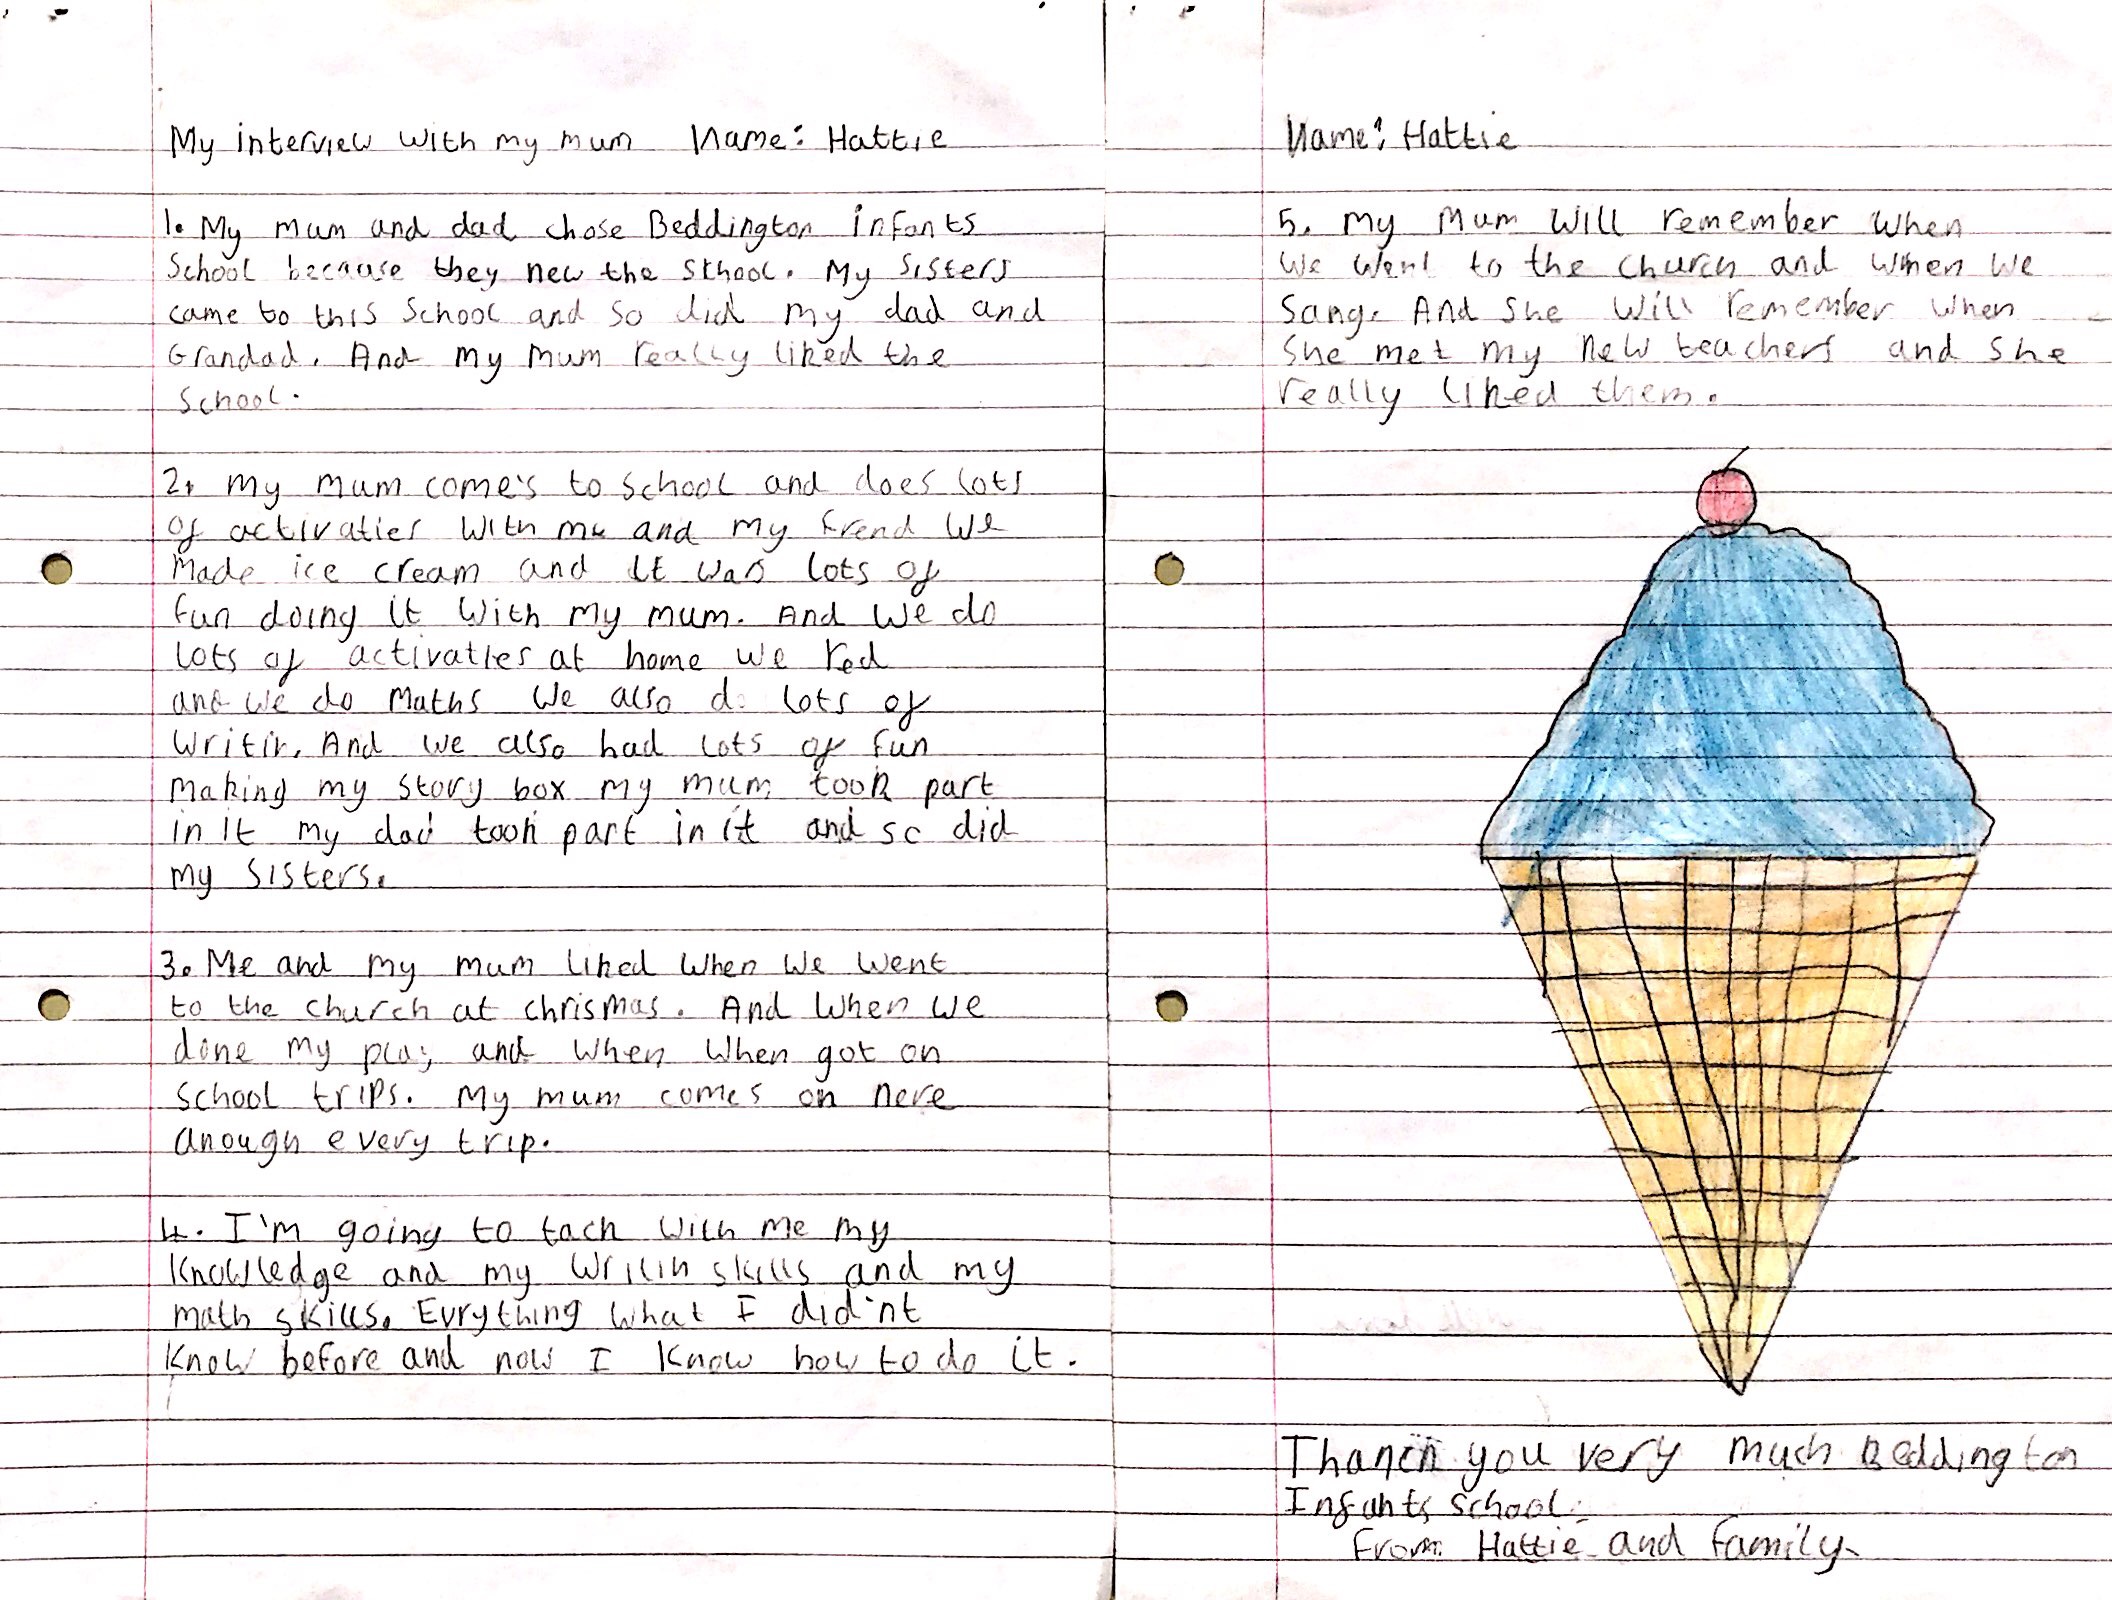 My interview with my mum Name: Hattie
1. My mum and dad chose Beddington infants
School because they new the sthool. My Sisters
came to this School and so did my dad and
Grandad. And my mum really liked the
School.
2. my mum come's to school and does lots
of activaties with me and my frend we
made ice cream and it was lots of
fun doing it with my mum. And we do
lots of activaties at home we red
and we do maths we also do lots of
writin. And we also had lots of fun
making my story box my mum took part
in it my dad took part in it and so did
my sisters.
3. Me and my mum liked when we went
to the church at chrismas. And when we
done my play and when when got on
school trips. My mum comes on nere
anough every trip.
4. I'm going to tach with me my
knowledge and my writin skills and my
math skills. Evrything what I did'nt
know before and now I know how to do it.
Name: Hattie
5. My Mum will remember when
we went to the church and when we
sang. And she will remember when
she met my new teachers and she
really liked them.
Thanch you very much Beddington
Infants School.
From Hattie and family.